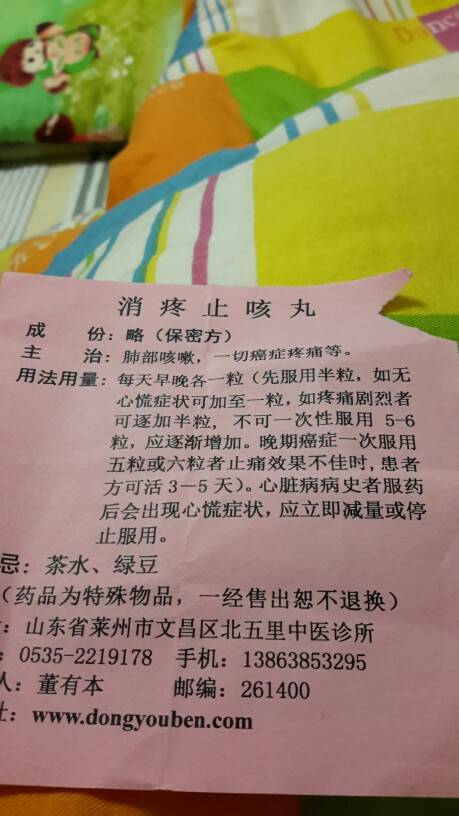 Danc
消疼止咳丸
成 份：略（保密方）
主 治：肺部咳嗽，一切癌症疼痛等。
用法用量：每天早晚各一粒（先服用半粒，如无
心慌症状可加至一粒，如疼痛剧烈者
可逐加半粒，不可一次性服用 5-6
粒，应逐渐增加。晚期癌症一次服用
五粒或六粒者止痛效果不佳时，患者
方可活 3—5 天）。心脏病病史者服药
后会出现心慌症状，应立即减量或停
止服用。
忌：茶水、绿豆
（药品为特殊物品，一经售出恕不退换）
：山东省莱州市文昌区北五里中医诊所
：0535-2219178 手机：13863853295
人：董有本 邮编：261400
址：www.dongyouben.com